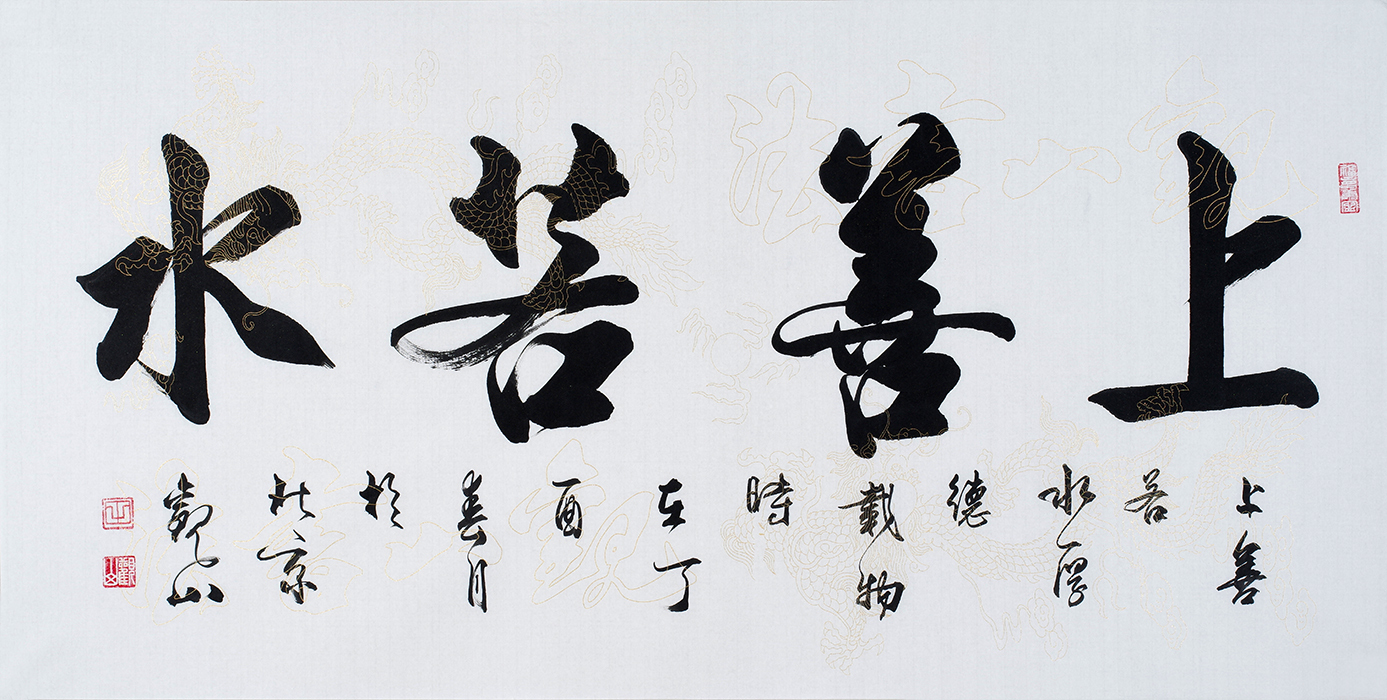 上善若水
上善
若
水厚
德
載物
時
在丁
酉
春月
於
北京
觀山